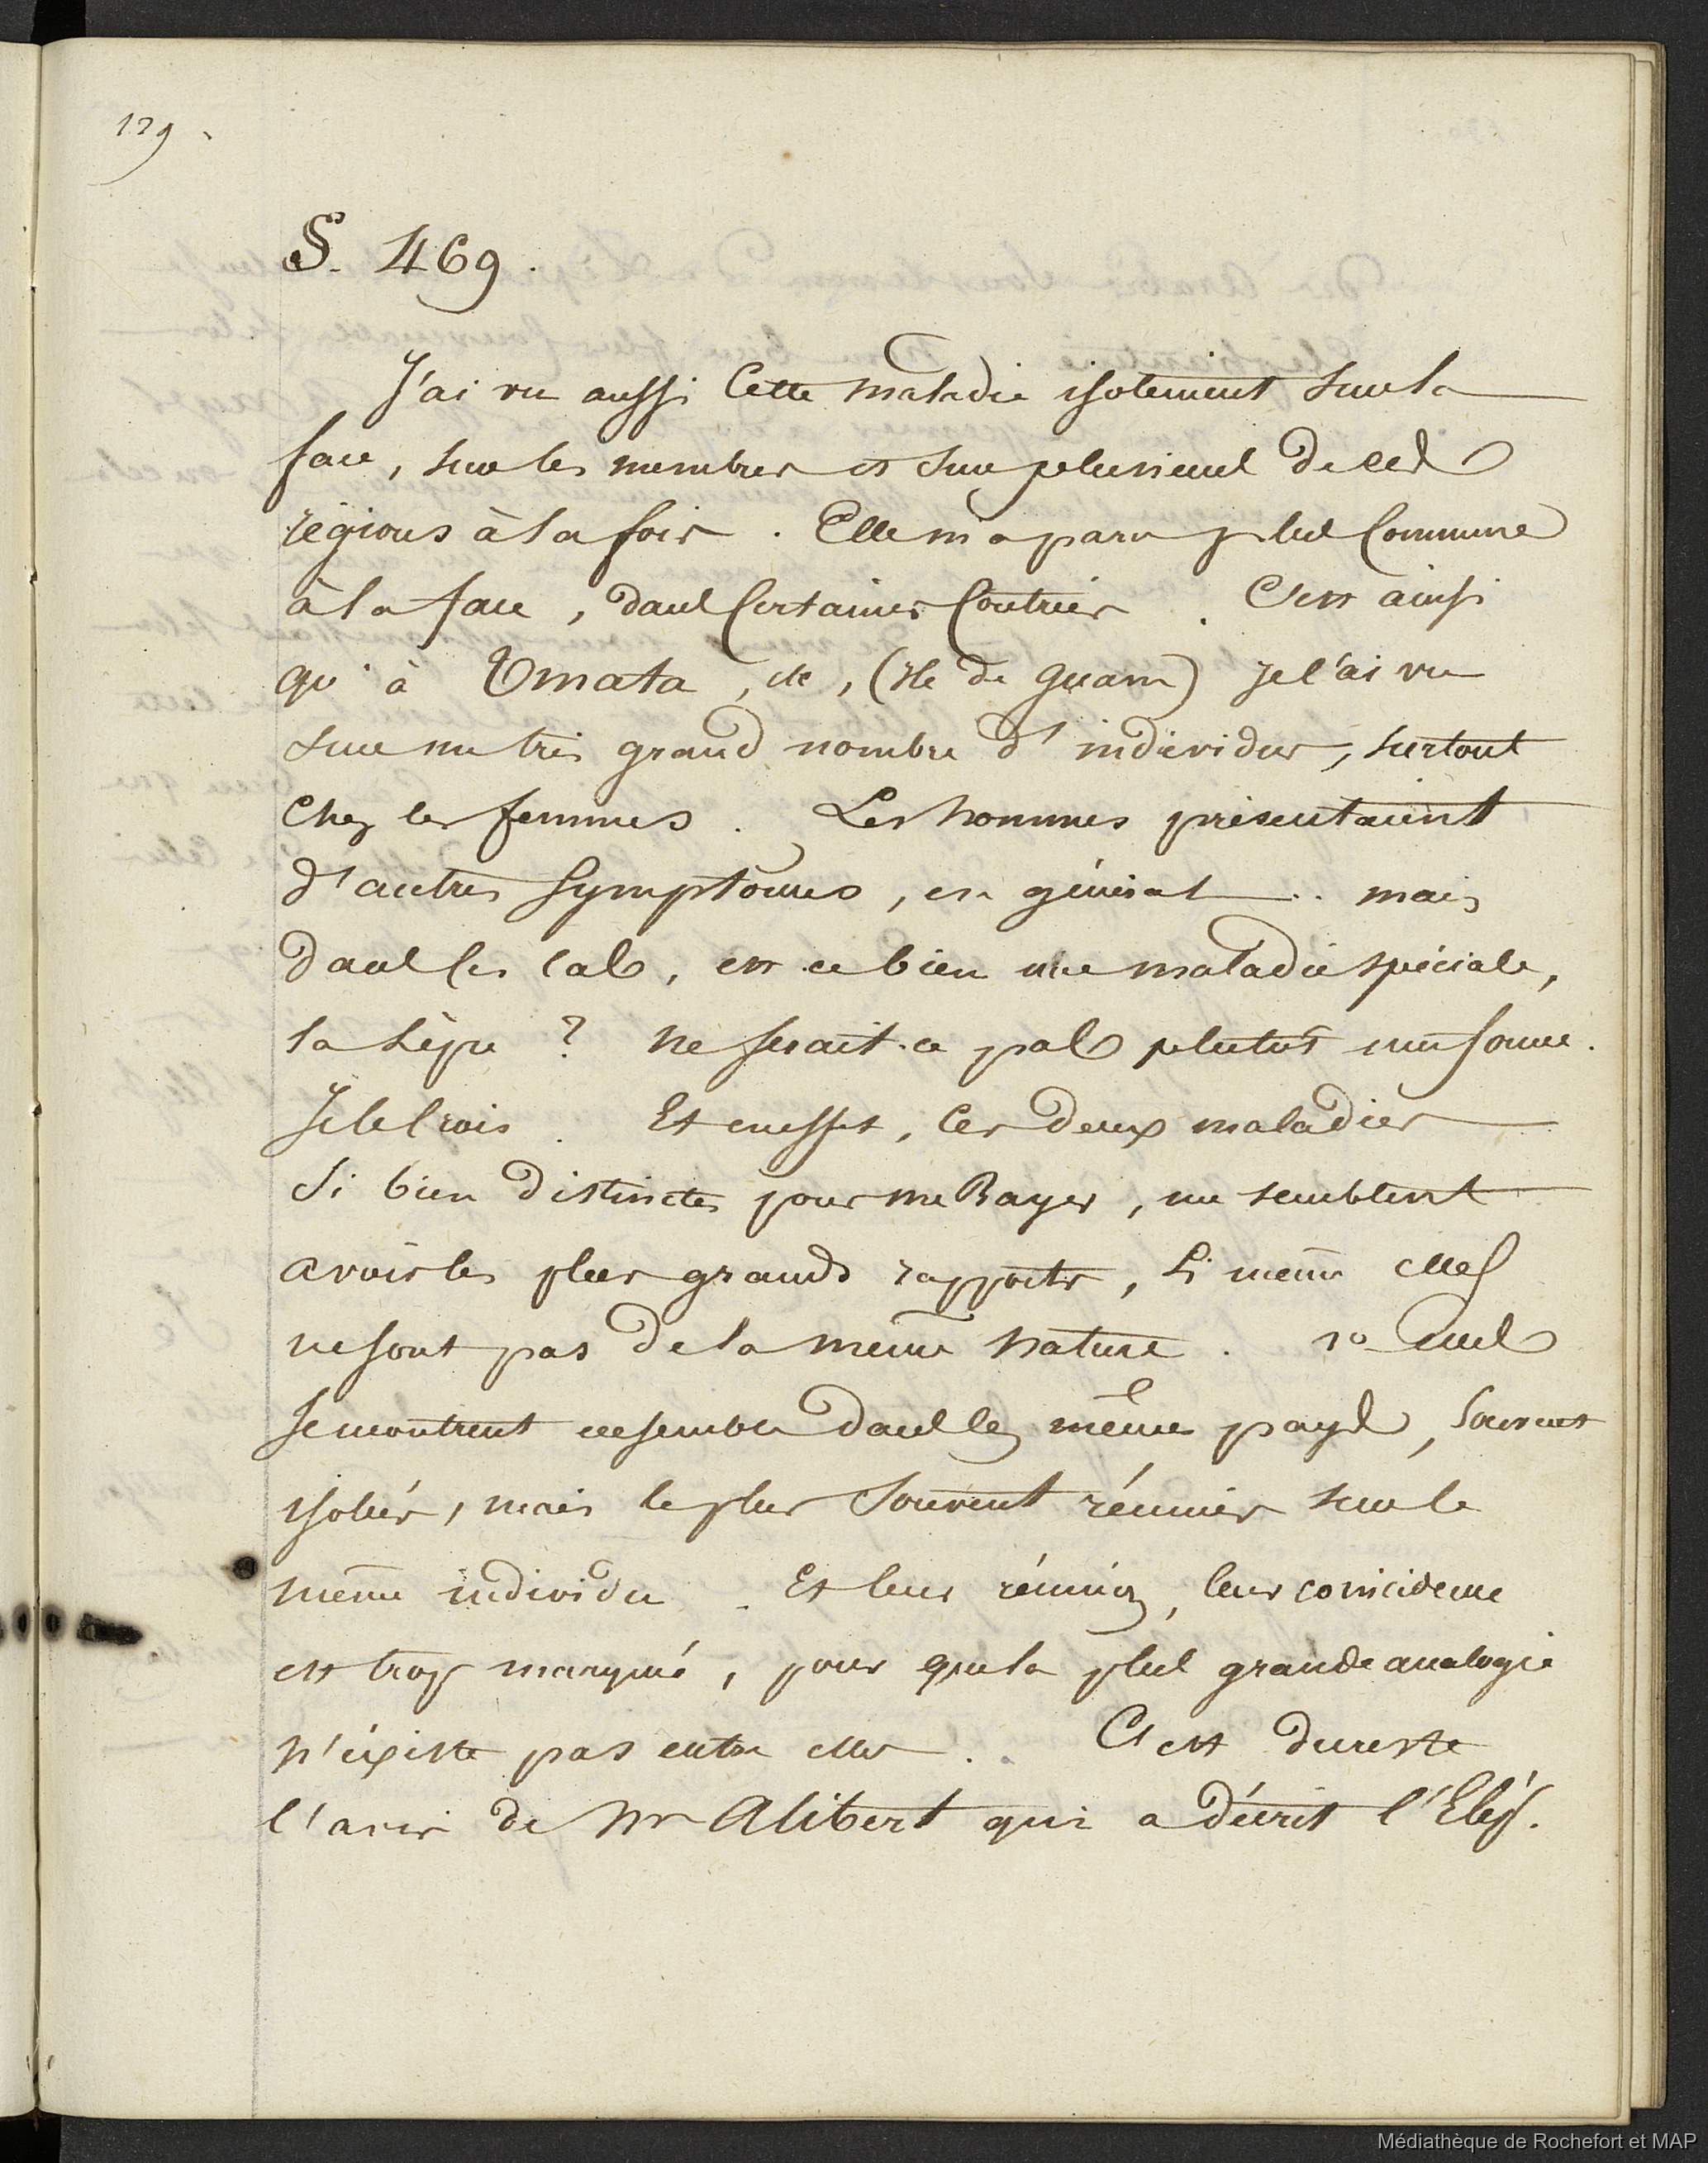 129.
§. 469.
J'ai vu aussi cette maladie isolément sur la
face, sur les membres et sur plusieurs de ces
régions à la fois. Elle m'a paru plus commune
à la face, dans certaines contrées. C'est ainsi
qu'à Umata, etc, (île de Guam) je l'ai vu
sur un très grand nombre d'individus, surtout
chez les femmes. Les hommes présentaient
d'autres symptômes, en général. mais
dans ces cas, est ce bien une maladie spéciale,
la lèpre ? Ne serait-ce pas plutôt une forme.
Je le crois. Et en effet, ces deux maladies
si bien distinctes pour mr Rayer, me semblent
avoir les plus grands rapports, si même elles
ne sont pas de la même nature. 1º Elles
se montrent ensemble dans les mêmes pays, souvent
isolées, mais le plus souvent réunies sur le
même individu. Et leur réunion, leur coincidence
est trop marqué, pour que la plus grande analogie
n'éxiste pas entre elles. C'est du reste
l'avis de Mr Alibert qui a décrit l'Elép.
Médiathèque de Rochefort et MAP